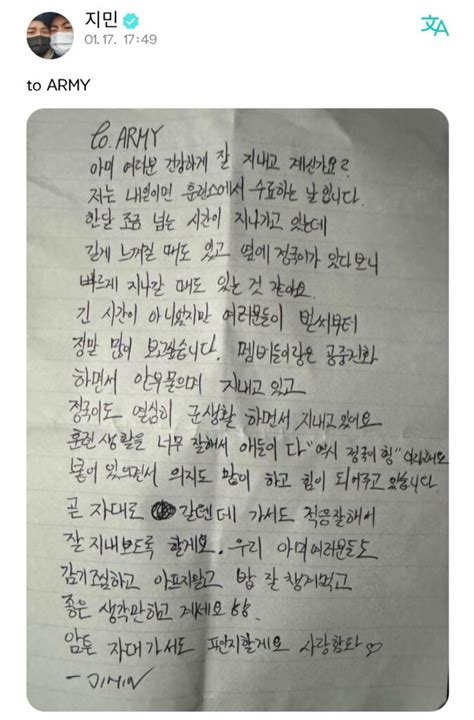 지민
01. 17. 17:49
to ARMY
to. ARMY
아미 여러분 건강하게 잘 지내고 계신가요?
저는 내일이면 훈련소에서 수료하는 날입니다.
한달 조금 넘는 시간이 지나가고 있는데
길게 느껴질 때도 있고 옆에 정국이가 있다보니
빠르게 지나갈 때도 있는 것 같아요.
긴 시간이 아니었지만 여러분들이 벌써부터
정말 많이 보고싶습니다. 멤버들이랑은 공중전화
하면서 안부 물으며 지내고 있고
정국이도 열심히 군생활 하면서 지내고 있어요
훈련 생활을 너무 잘해서 애들이 다 "역시 정국이 형" 이래요
붙어 있으면서 의지도 많이 하고 힘이 되어주고 있습니다.
곧 자대로 갈텐데 가서도 적응잘해서
잘 지내보도록 할게요. 우리 아미여러분들도
감기조심하고 아프지말고 밥 잘 챙겨먹고
좋은 생각만하고 계세요
암튼 자대가서도 편지할게요 사랑합니다 ♡
- JIMIN